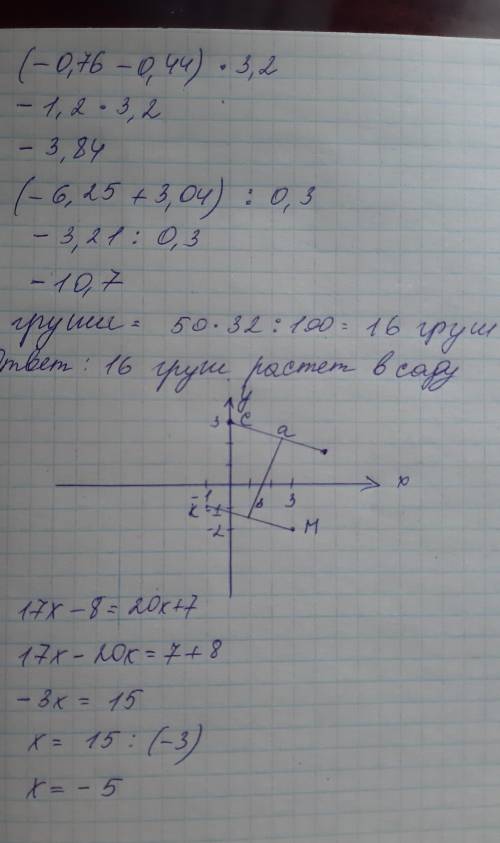 (-0,76 - 0,44) · 3,2
- 1,2 · 3,2
- 3,84
(-6,25 + 3,04) : 0,3
- 3,21 : 0,3
-10,7
груши = 50 · 32 : 100 = 16 груш
Ответ : 16 груш растет в саду
y
3 C
a
x
-1 3
K -1 b
-2 M
17x - 8 = 20x + 7
17x - 20x = 7 + 8
- 3x = 15
x = 15 : (-3)
x = - 5